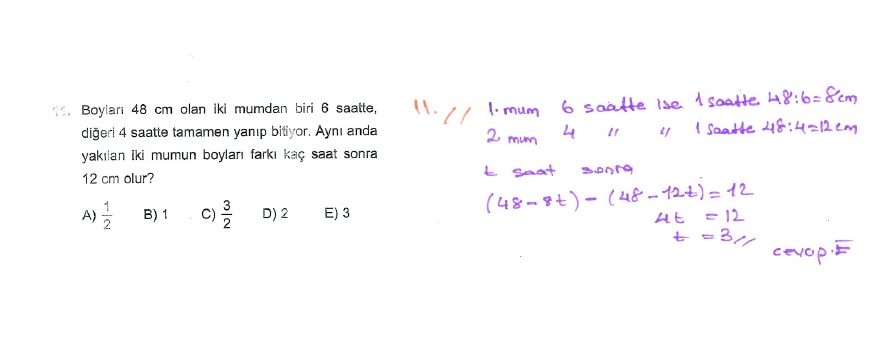 11. Boyları 48 cm olan iki mumdan biri 6 saatte,
diğeri 4 saatte tamamen yanıp bitiyor. Aynı anda
yakılan iki mumun boyları farkı kaç saat sonra
12 cm olur?
A) 1/2 B) 1 C) 3/2 D) 2 E) 3
11. //
1. mum 6 saatte ise 1 saatte 48:6=8cm
2 mum 4 " " 1 saatte 48:4=12cm
t saat sonra
(48-8t)-(48-12t)=12
4t = 12
t = 3//
cevap.E